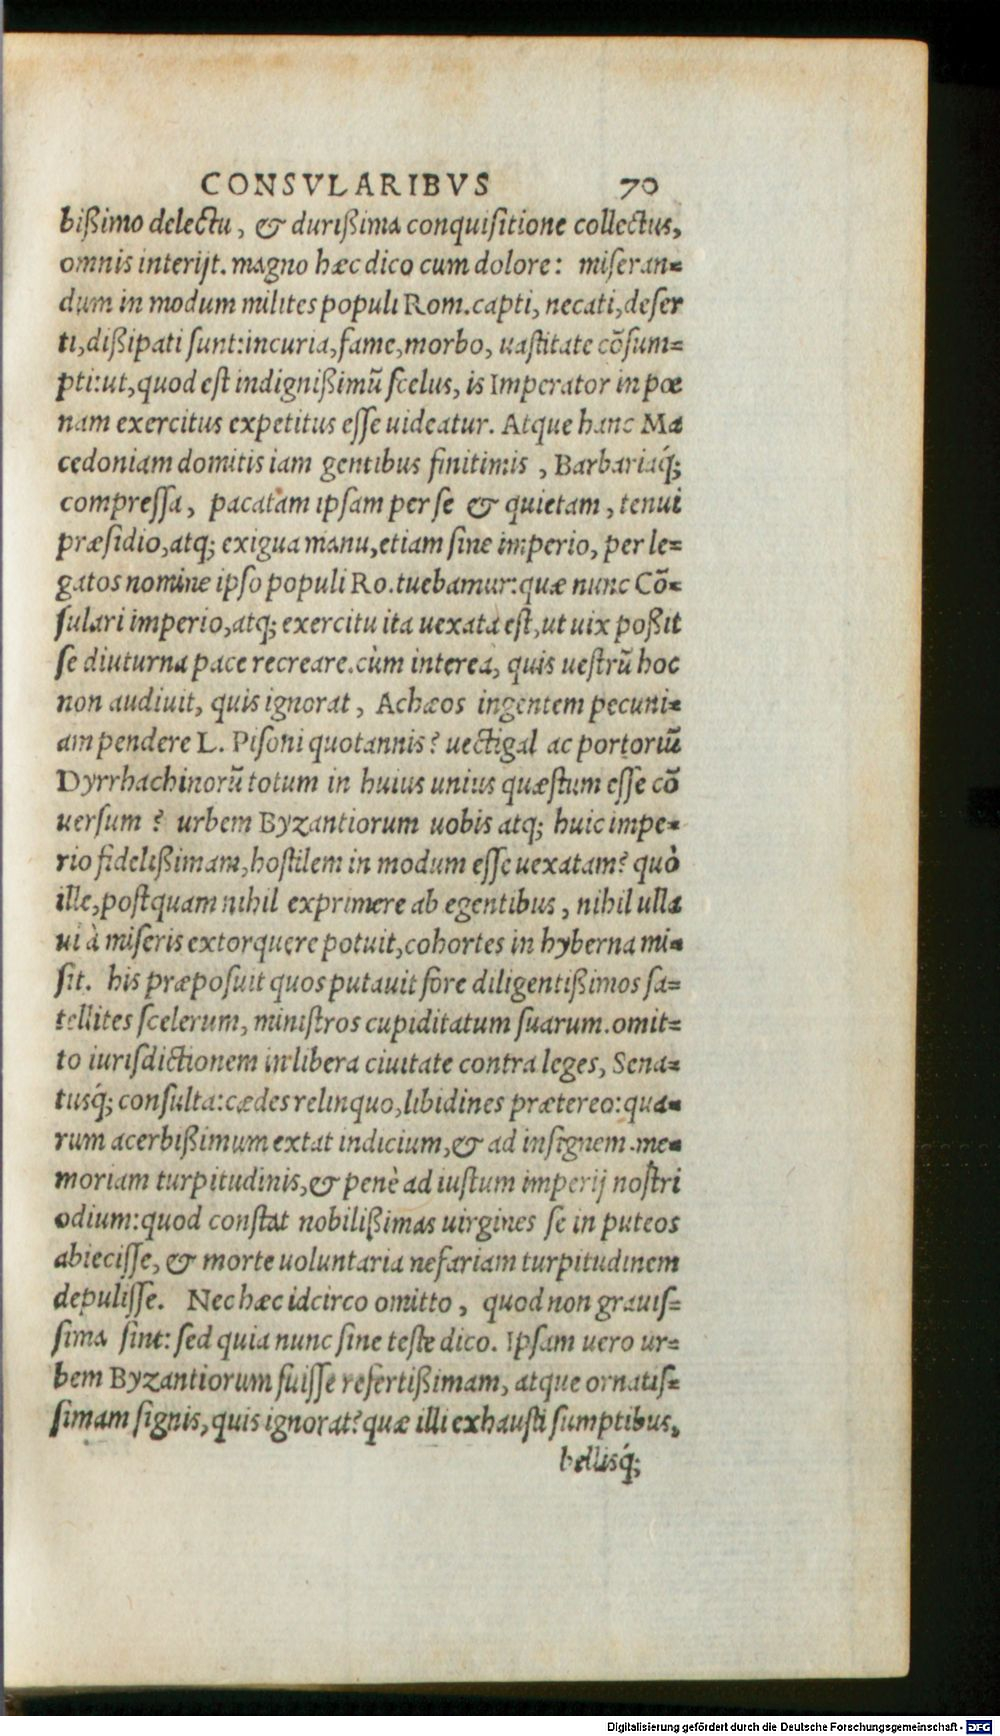 CONSVLARIBVS 70
bißimo delectu, & durißima conquisitione collectus,
omnis interijt. magno hæc dico cum dolore: miseran=
dum in modum milites populi Rom. capti, necati, deser
ti, dißipati sunt: incuria, fame, morbo, uastitate cōsum=
pti: ut, quod est indignißimū scelus, is Imperator in pœ
nam exercitus expetitus esse uideatur. Atque hanc Ma
cedoniam domitis iam gentibus finitimis, Barbariaq́;
compressa, pacatam ipsam per se & quietam, tenui
præsidio, atq; exigua manu, etiam sine imperio, per le=
gatos nomine ipso populi Ro. tuebamur: quæ nunc Cō=
sulari imperio, atq; exercitu ita uexata est, ut uix poßit
se diuturna pace recreare. cùm interea, quis uestrū hoc
non audiuit, quis ignorat, Achæos ingentem pecuni=
am pendere L. Pisoni quotannis? uectigal ac portoriū
Dyrrhachinorū totum in huius unius quæstum esse cō
uersum? urbem Byzantiorum uobis atq; huic impe=
rio fidelißimam, hostilem in modum esse uexatam? quò
ille, postquam nihil exprimere ab egentibus, nihil ulla
ui à miseris extorquere potuit, cohortes in hyberna mi=
sit. his præposuit quos putauit fore diligentißimos sa=
tellites scelerum, ministros cupiditatum suarum. omit=
to iurisdictionem in libera ciuitate contra leges, Sena=
tusq́; consulta: cædes relinquo, libidines prætereo: qua=
rum acerbißimum extat indicium, & ad insignem me=
moriam turpitudinis, & penè ad iustum imperij nostri
odium: quod constat nobilißimas uirgines se in puteos
abiecisse, & morte uoluntaria nefariam turpitudinem
depulisse. Nec hæc idcirco omitto, quod non grauis=
sima sint: sed quia nunc sine teste dico. Ipsam uero ur=
bem Byzantiorum fuisse refertißimam, atque ornatis=
simam signis, quis ignorat? quæ illi exhausti sumptibus,
bellisq́;
Digitalisierung gefördert durch die Deutsche Forschungsgemeinschaft - DFG